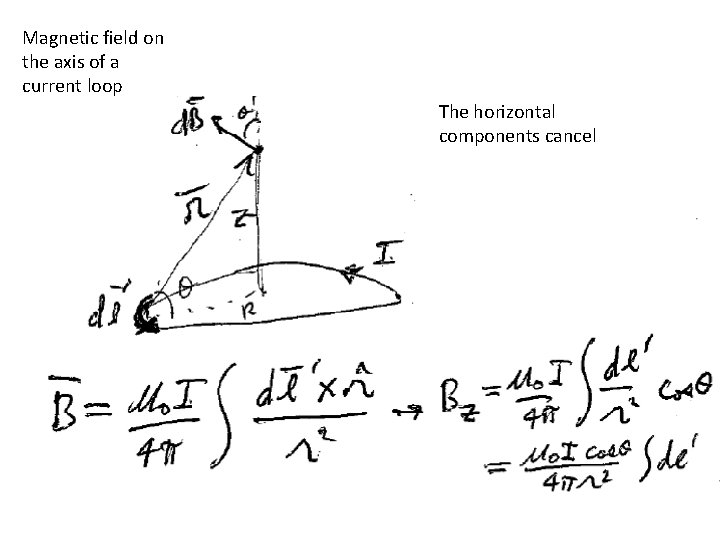 Magnetic field on
the axis of a
current loop
The horizontal
components cancel
dB̄ θ
𝓇̄ z
I
θ
dl̄' R
B̄ = μ₀I/4π ∫ dl̄' × 𝓇̂ / 𝓇² → B_z = μ₀I/4π ∫ dl'/𝓇² cosθ
= μ₀I cosθ/4π𝓇² ∫ dl'